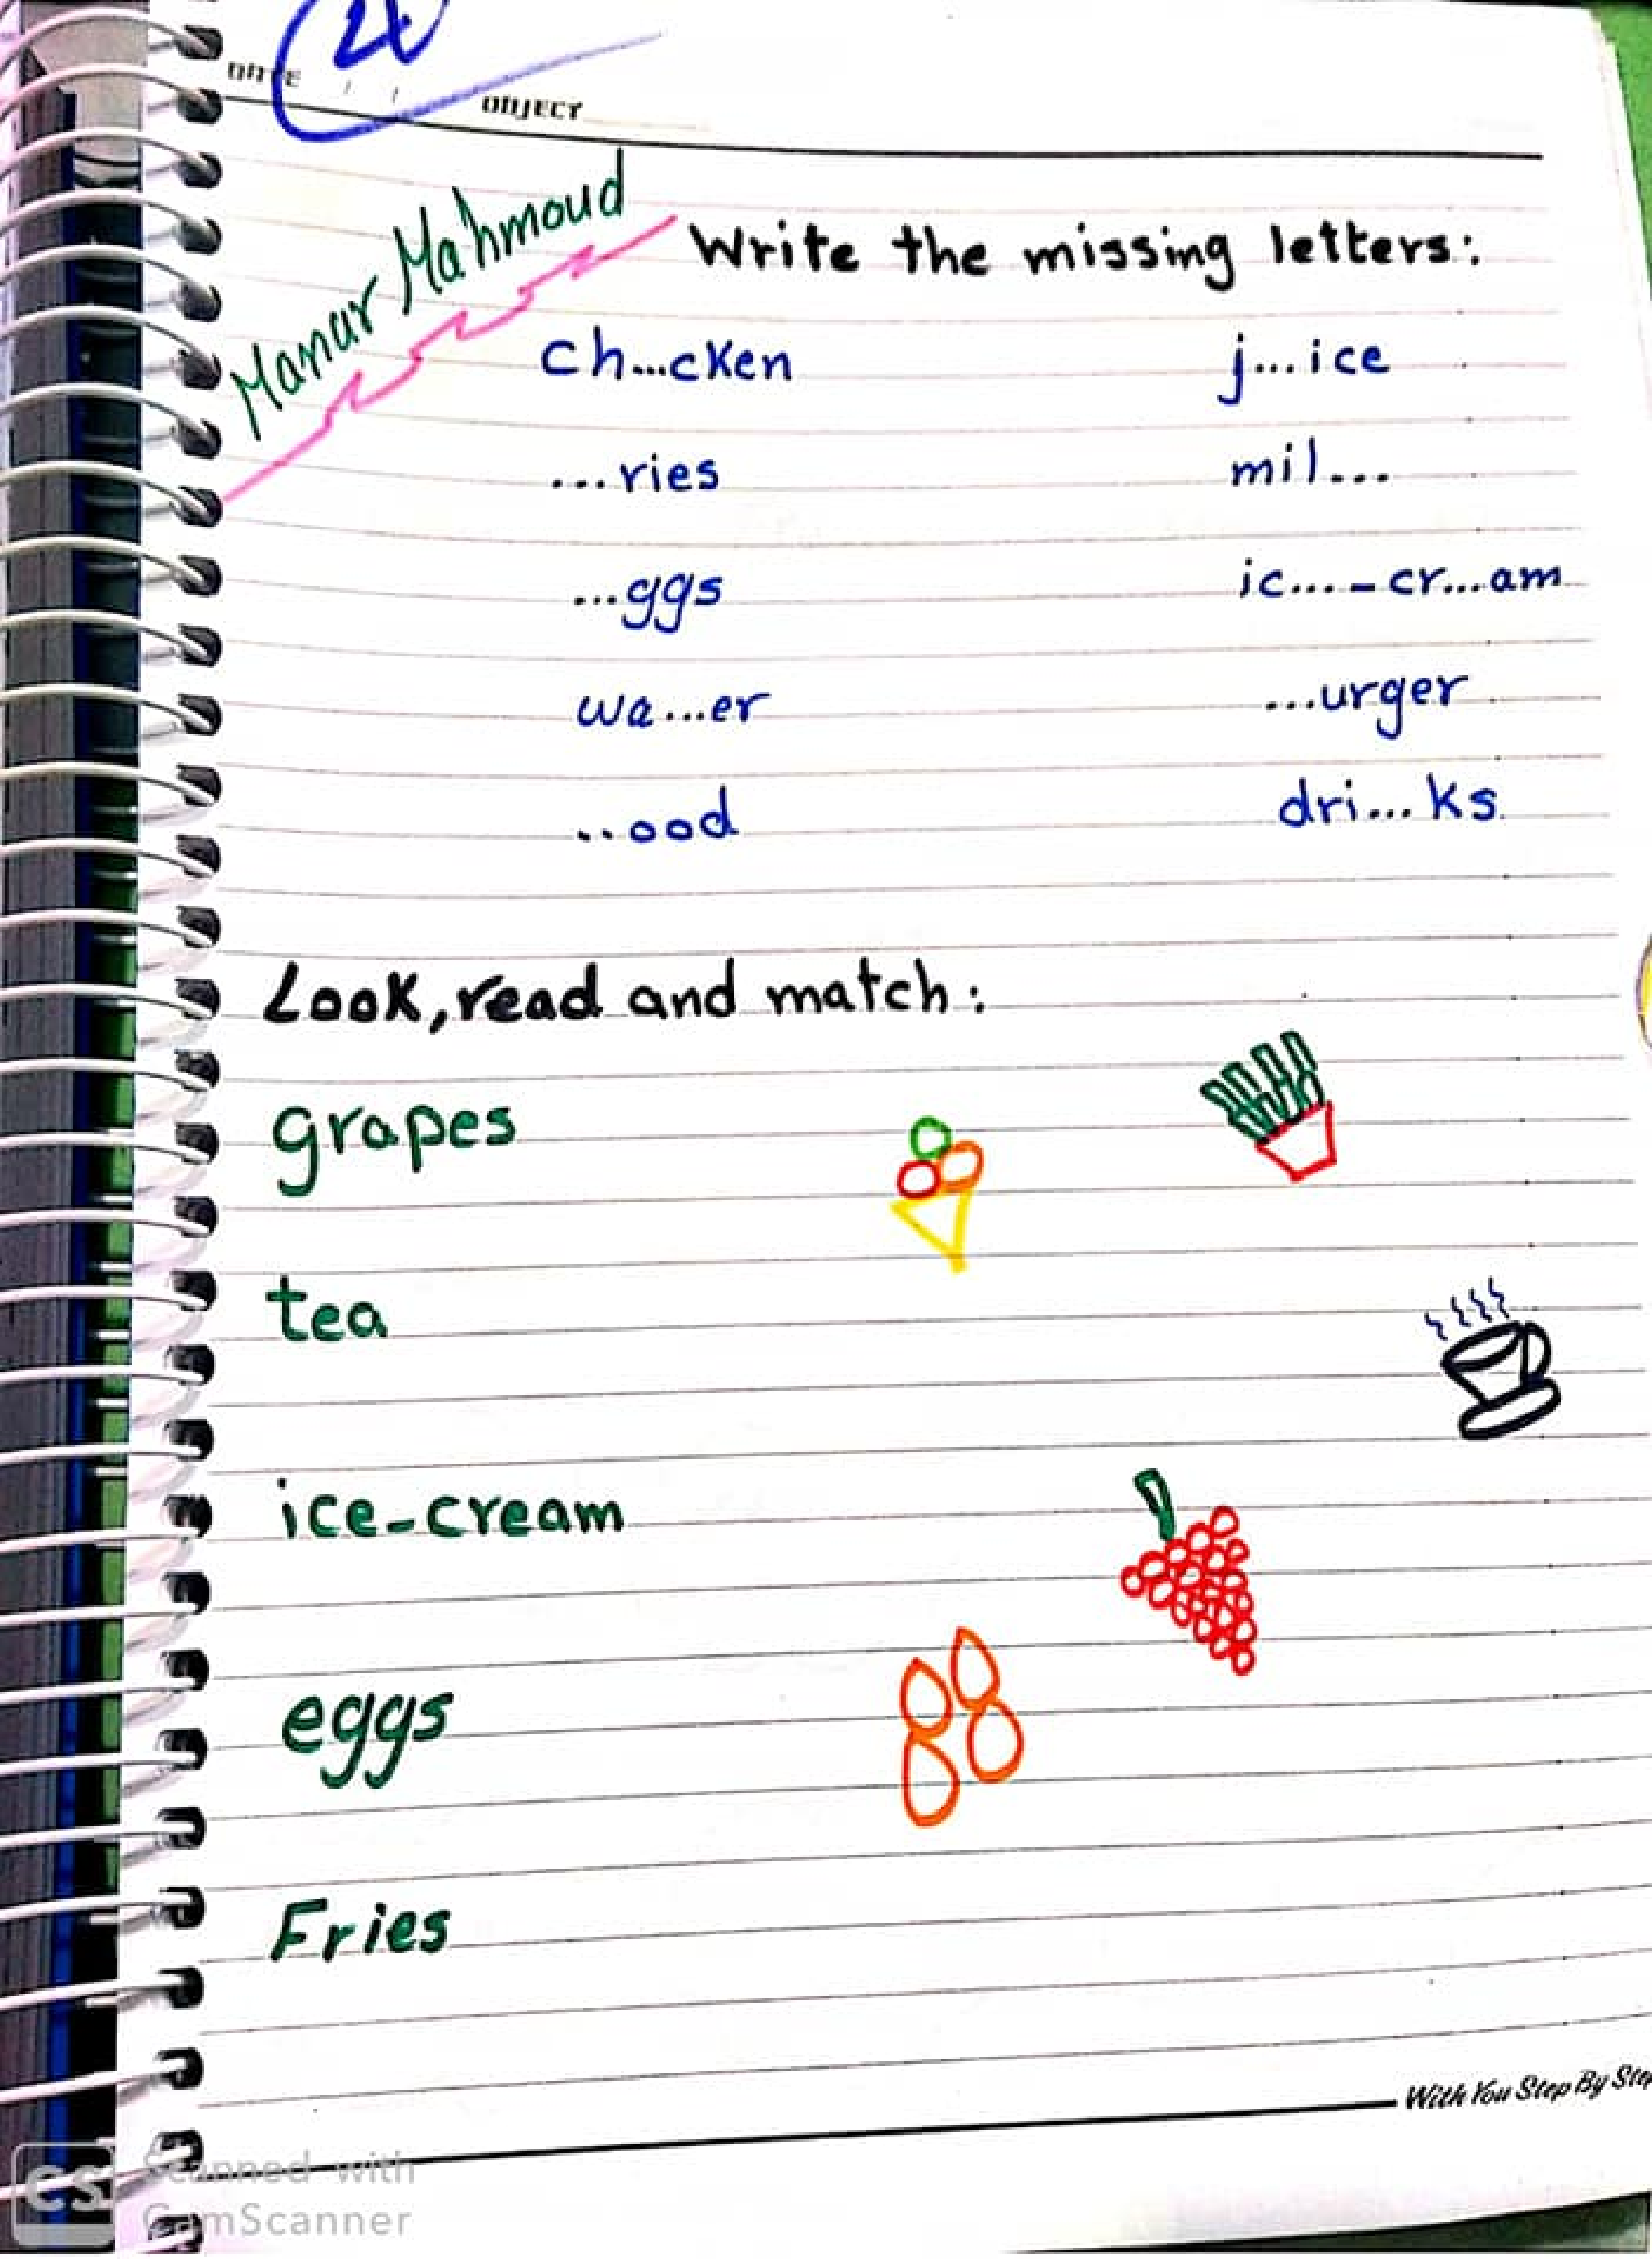 24
DATE / / OBJECT
Manar Mahmoud
Write the missing letters:
ch...cken j...ice
...ries mil...
...ggs ic...-cr...am
wa...er ...urger
..ood dri...ks
Look, read and match:
grapes
tea
ice-cream
eggs
Fries
With You Step By Step
CS Scanned with
CamScanner